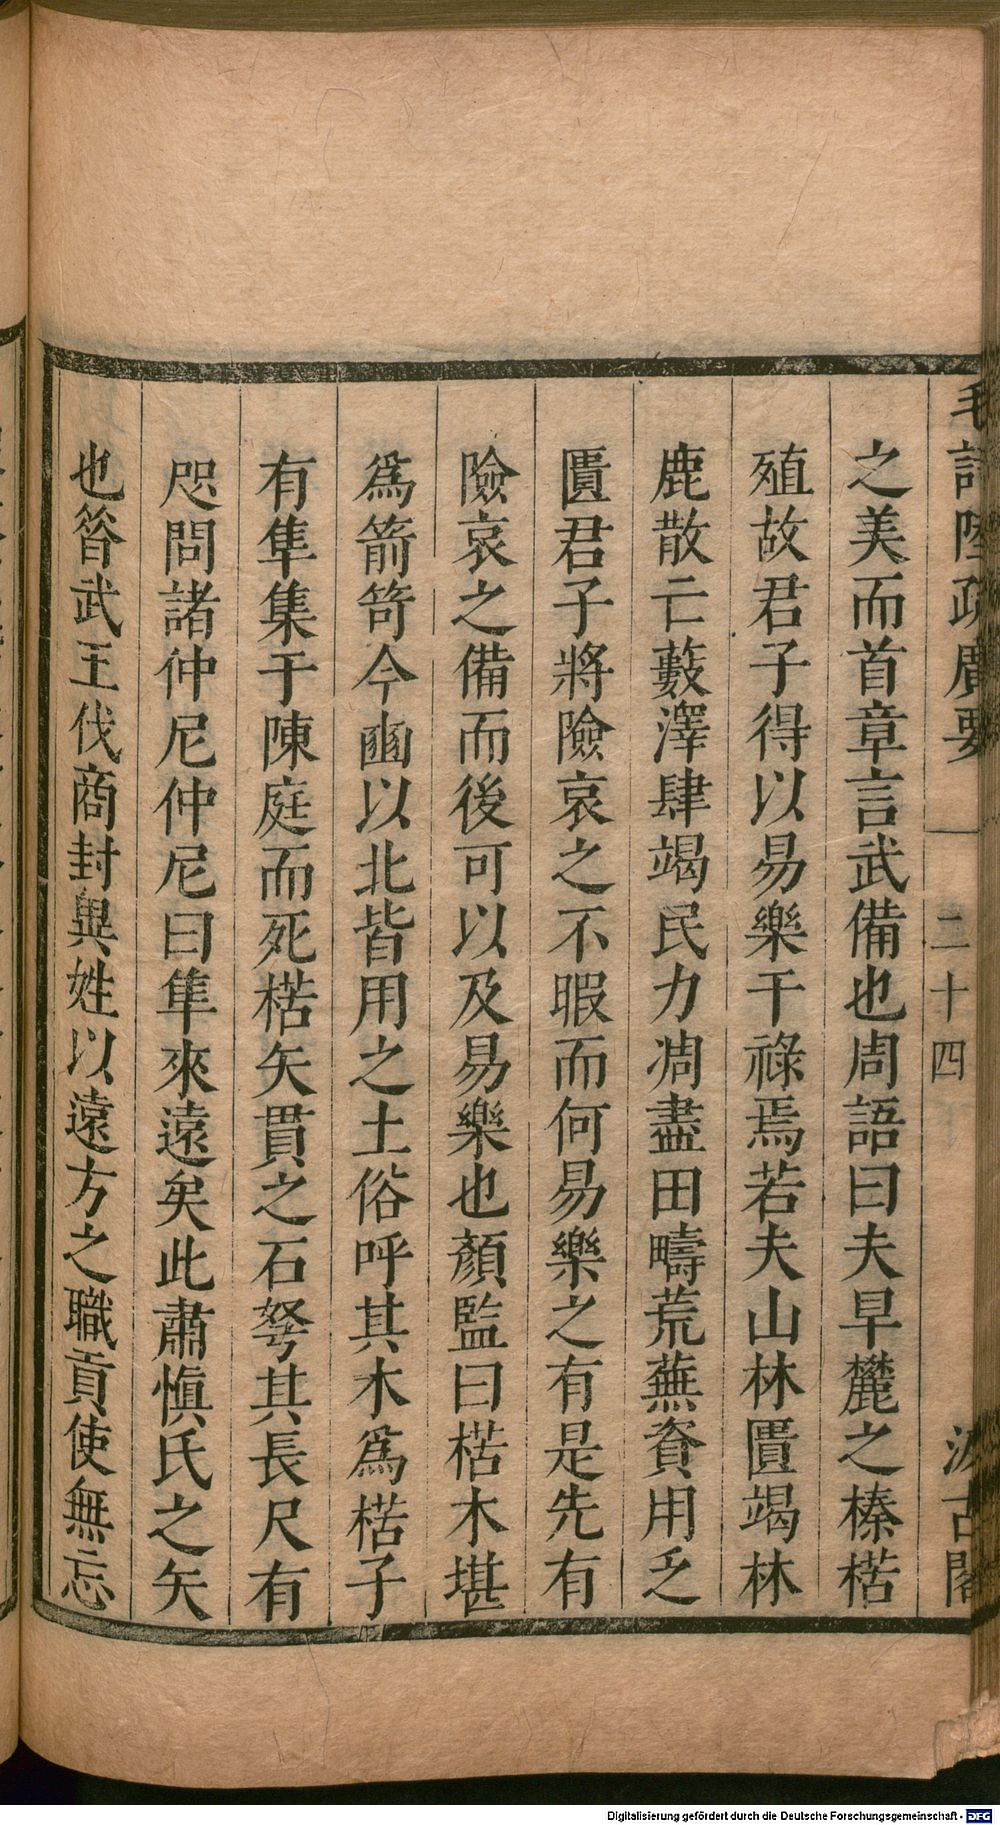 毛詩陸疏廣要
二十四
汲古閣
之美而首章言武備也周語曰夫早麓之榛楛
殖故君子得以易樂干祿焉若夫山林匱竭林
鹿散亡藪澤肆竭民力凋盡田疇荒蕪資用乏
匱君子將險哀之不暇而何易樂之有是先有
險哀之備而後可以及易樂也顏監曰楛木堪
爲箭笴今豳以北皆用之土俗呼其木爲楛子
有隼集于陳庭而死楛矢貫之石砮其長尺有
咫問諸仲尼仲尼曰隼來遠矣此肅愼氏之矢
也昝武王伐商封異姓以遠方之職貢使無忘
Digitalisierung gefördert durch die Deutsche Forschungsgemeinschaft - DFG